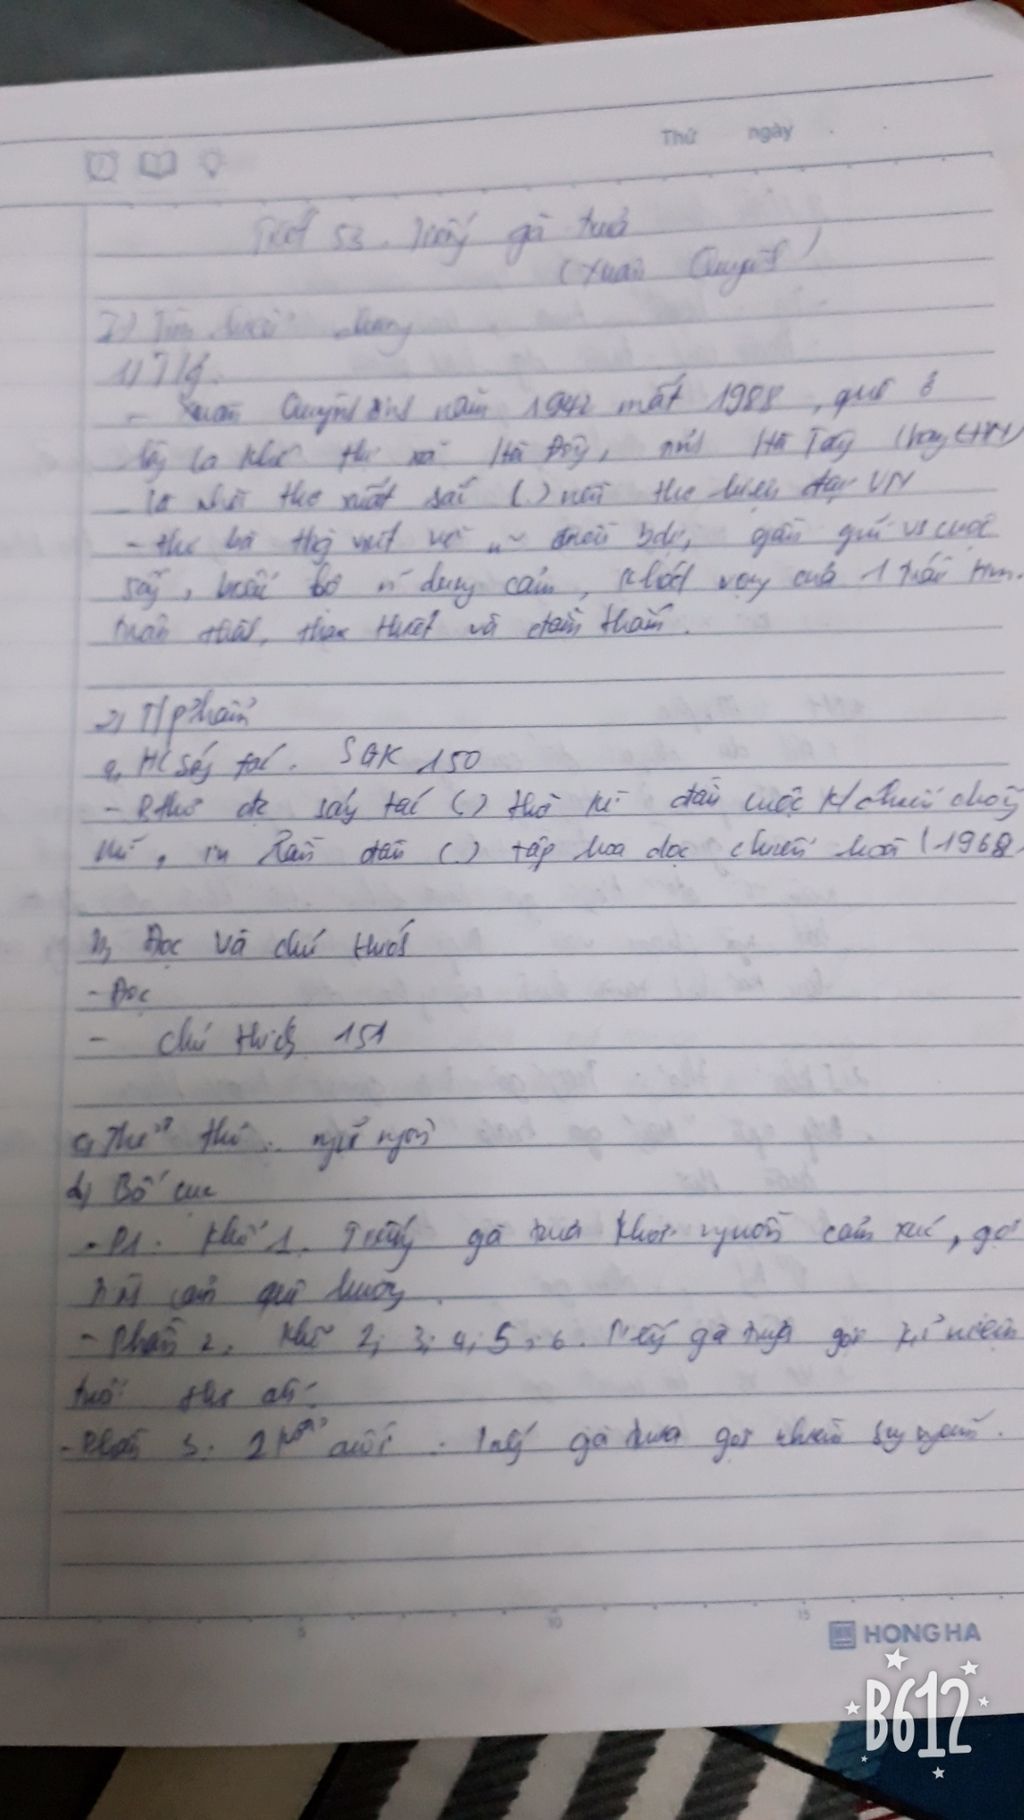 Thứ ngày
Tiết 53. Tiếng gà trưa
(Xuân Quỳnh)
I) Tìm hiểu chung
1) T/g.
- Xuân Quỳnh sinh năm 1942 mất 1988, quê ở
La Khê thị xã Hà Đông, tỉnh Hà Tây (nay HN)
- là nhà thơ xuất sắc (.) nền thơ hiện đại VN
- thơ bà thg viết về điều bdị, gần gũi vs cuộc
sg, biểu bộ rung cảm, khát vọng của 1 trái tim
chân thật, tha thiết và đằm thắm.
2) T/phẩm
a, HC ság tác. SGK 150
- B.thơ đc ság tác (.) thời kì đầu cuộc k/chiến chống
Mĩ, in lần đầu (.) tập hoa dọc chiến hào (1968
b, Đọc và chú thích
- Đọc
- chú thích 151
c, Thể thơ: ngũ ngôn
d, Bố cục
- P1. Khổ 1. Tiếng gà trưa khơi nguồn cảm xúc, gợi
cảm quê hương.
- Phần 2. Khổ 2, 3, 4, 5, 6. Tiếng gà trưa gợi kỉ niệm
tuổi thơ
- Phần 3. 2 khổ cuối. Tiếng gà trưa gợi nhiều suy ngẫm.
5 10 15
HONG HA
B612